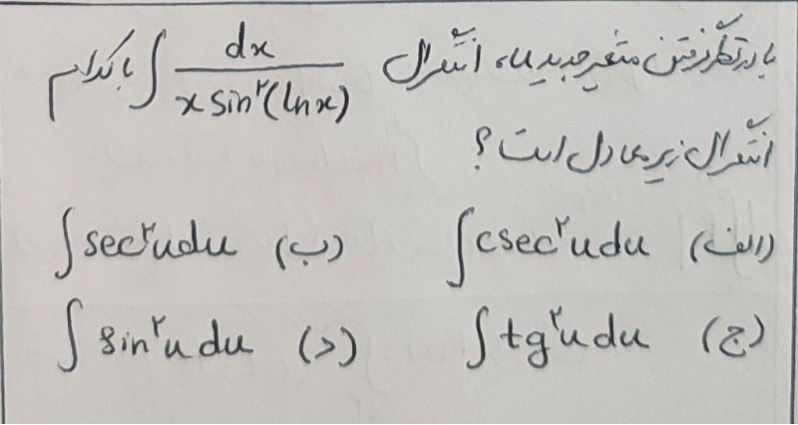 با درنظر گرفتن متغیر جدید u، انتگرال ∫ dx / x sin²(ln x) با کدام
انتگرال زیر معادل است؟
الف) ∫ csec²u du ب) ∫ sec²u du
ج) ∫ tg²u du د) ∫ sin²u du